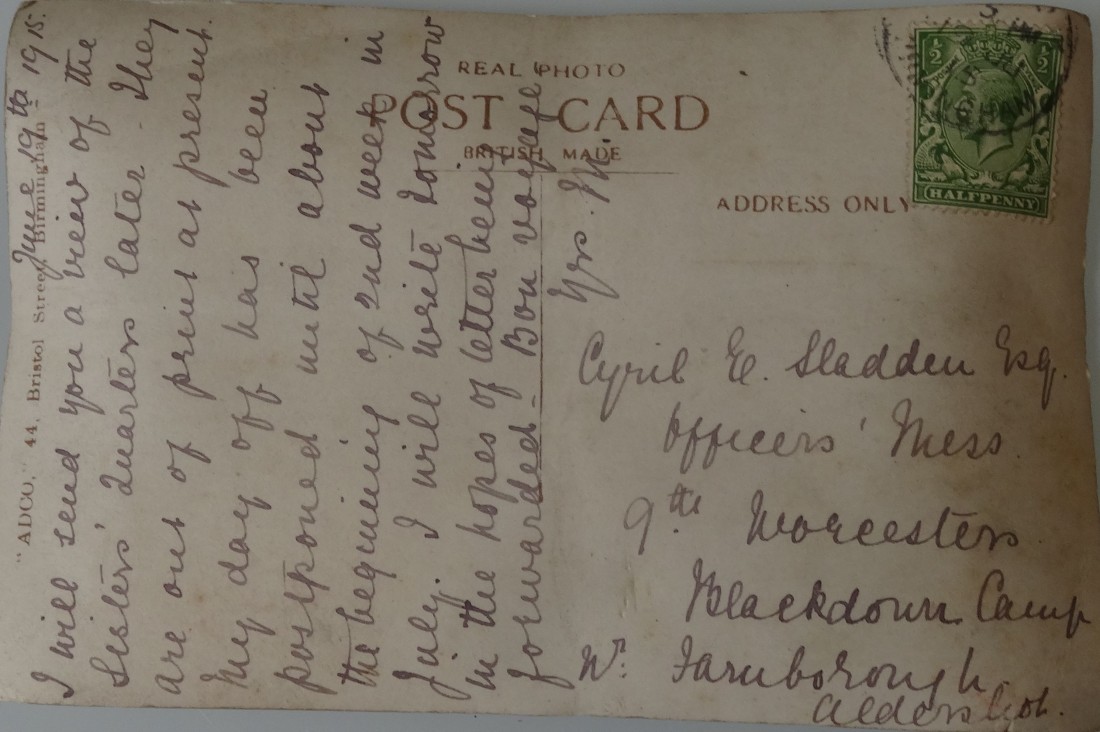 REAL PHOTO
POST CARD
BRITISH MADE
ADDRESS ONLY
½ ½
HALFPENNY
"ADCO," 44, Bristol Street, Birmingham
June 19th 1915.
I will send you a view of the
Sisters' Quarters later - they
are out of print at present.
My day off has been
postponed until about
the beginning of 2nd week in
July. I will write tomorrow
in the hopes of letter being
forwarded - Bon voyage
Yrs. M.
Cyril E. Sladden Esq.
Officers' Mess
9th Worcesters
Blackdown Camp
Nr: Farnborough
Aldershot.